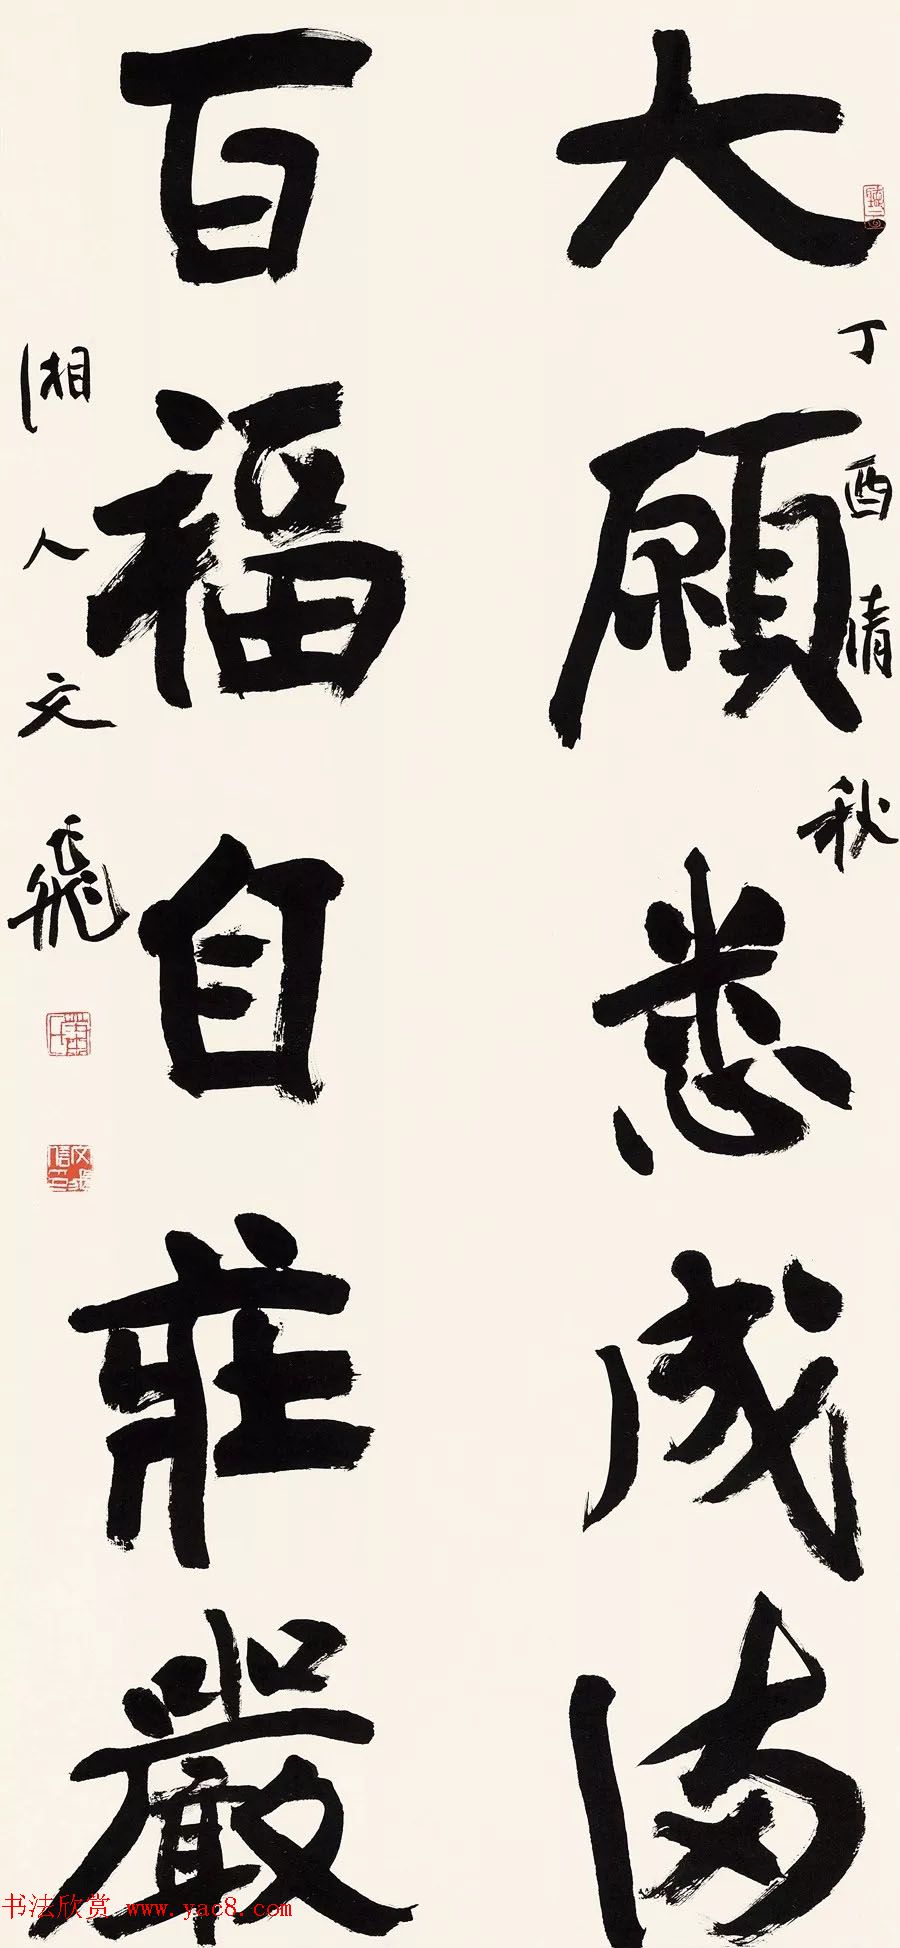 丁酉清秋
大願悉成滿
百福自莊嚴
湘人文飛
书法欣赏 www.yac8.com